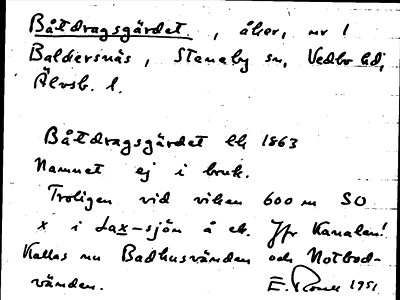 Båtdragsgärdet, åker, nr 1
Baldersnäs, Steneby sn, Vedbo hd,
Älvsb. l.
Båtdragsgärdet lk 1863
Namnet ej i bruk.
Troligen vid viken 600 m SO
x i Lax-sjön å ek. Jfr Kanalen!
Kallas nu Badhusvänden och Notbod-
vänden. E. 1951